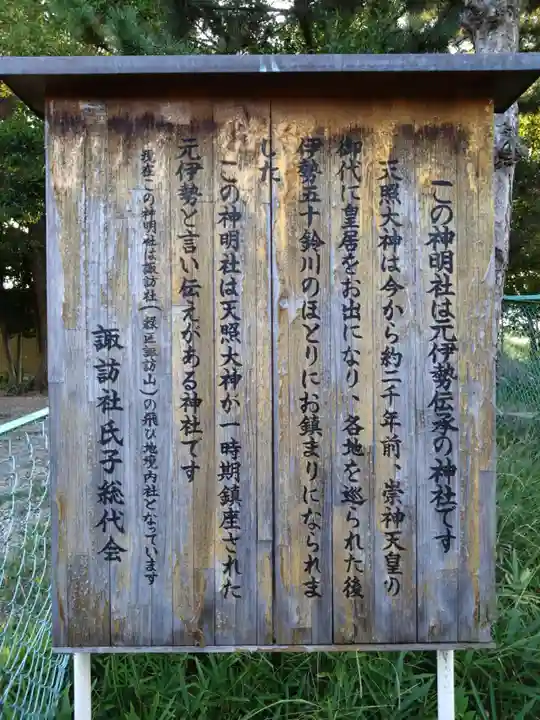 この神明社は元伊勢伝承の神社です
天照大神は今から約二千年前、崇神天皇の
御代に皇居をお出になり、各地を巡られた後
伊勢五十鈴川のほとりにお鎮まりになられま
した
この神明社は天照大神が一時期鎮座された
元伊勢と言い伝えがある神社です
現在この神明社は諏訪社(緑区諏訪山)の飛び地境内社となっています
諏訪社氏子総代会